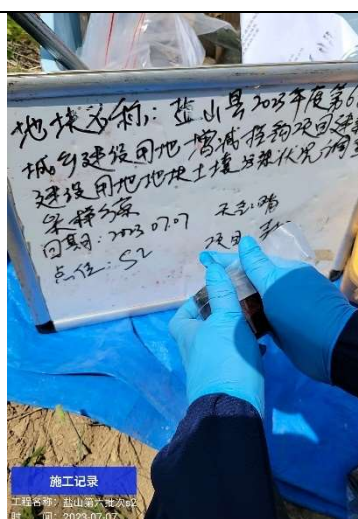 地块名称：盐山县2023年度第6
城乡建设用地增减挂钩项目建
建设用地地块土壤污染状况调
采样
日期：2023.07.07 天气：晴
点位：S2 项目
施工记录
工程名称：盐山第六批次s2
时 间：2023-07-07